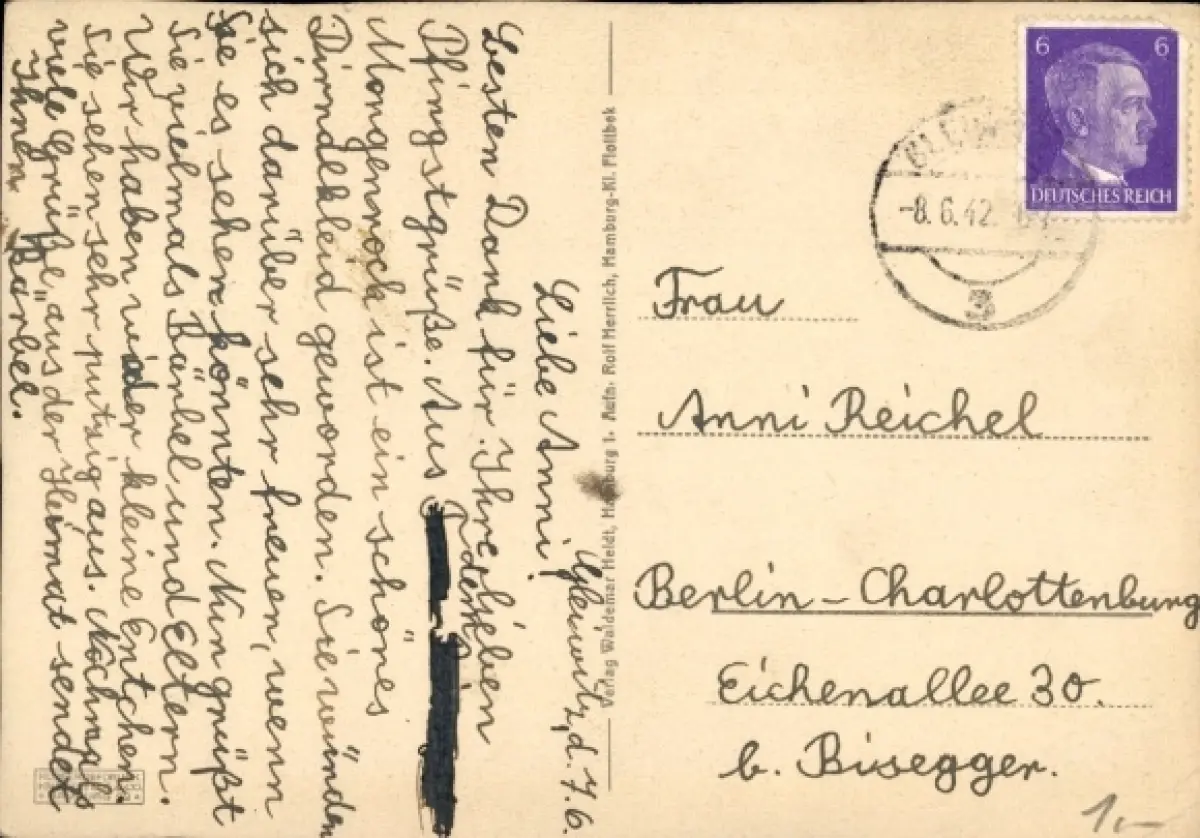 Gleiwitz, d. 7.6.
Liebe Anni!
Besten Dank für Ihre lieben
Pfingstgrüße. Aus dem
Morgenrock ist ein schönes
Dirndlkleid geworden. Sie würden
sich darüber sehr freuen, wenn
Sie es sehen könnten. Nun grüßt
Sie vielmals Bärbel und Eltern.
Wir haben wieder kleine Entchen.
Sie sehen sehr putzig aus. Nochmals
viele Grüße, aus der Heimat sendet
Ihnen Bärbel.
Verlag Waldemar Heldt, Hamburg 1. Aufn. Rolf Herrlich, Hamburg-Kl. Flottbek
6 6
DEUTSCHES REICH
-8.6.42.
3
Frau
Anni Reichel
Berlin - Charlottenburg
Eichenallee 30.
b. Bisegger.
1,-